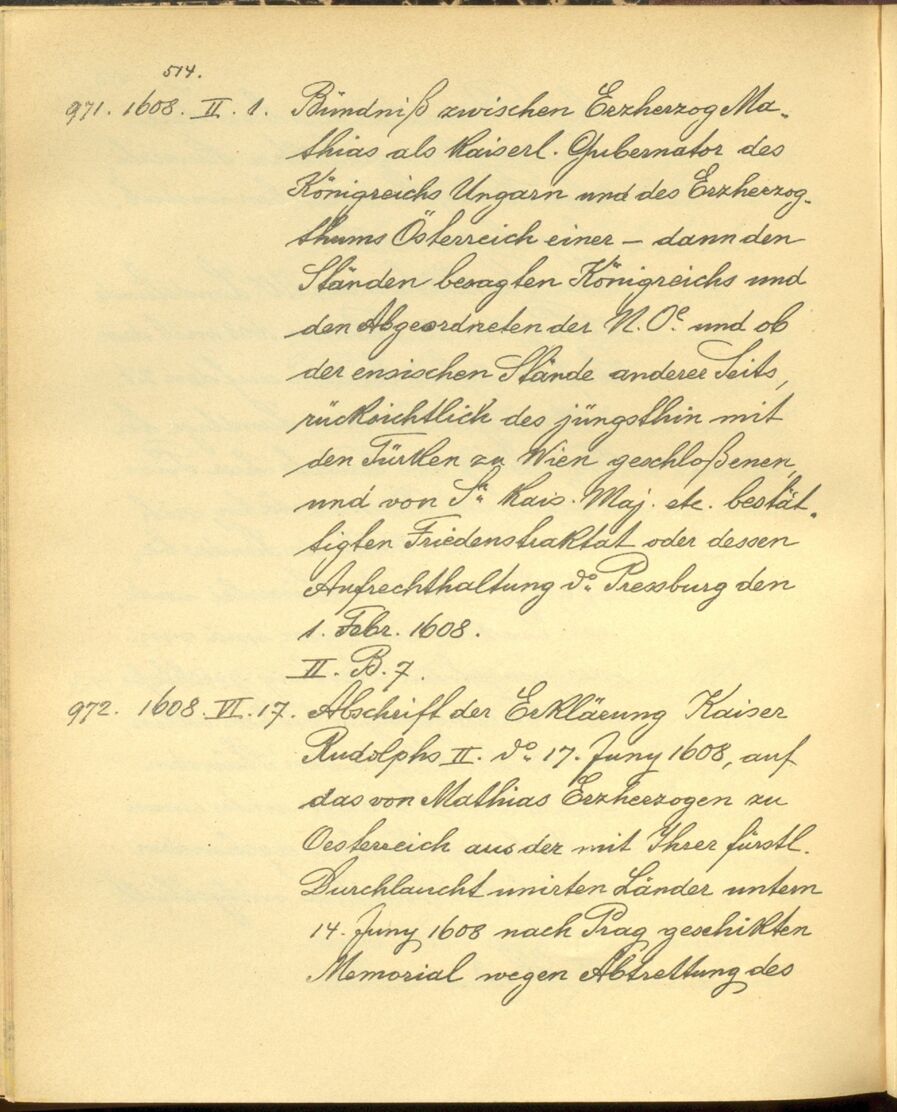 514.
971. 1608. II. 1. Bündniß zwischen Erzherzog Ma-
thias als Kaiserl. Gubernator des
Königreichs Ungarn und des Erzherzog-
thums Österreich einer – dann den
Ständen besagten Königreichs und
den Abgeordneten der N. Oe. und ob
der ensischen Stände anderer Seits,
rücksichtlich des jüngsthin mit
den Türken zu Wien geschloßenen,
und von Sr. Kais. Maj. etc. bestät-
tigten Friedenstraktat oder dessen
Aufrechthaltung do. Pressburg den
1. Febr. 1608.
II. B. 7.
972. 1608. VI. 17. Abschrift der Erklärung Kaiser
Rudolphs II. do. 17. Juny 1608, auf
das von Mathias Erzherzogen zu
Oesterreich aus der mit Ihrer fürstl.
Durchlaucht unirten Länder unterm
14. Juny 1608 nach Prag geschikten
Memorial wegen Abtrettung des